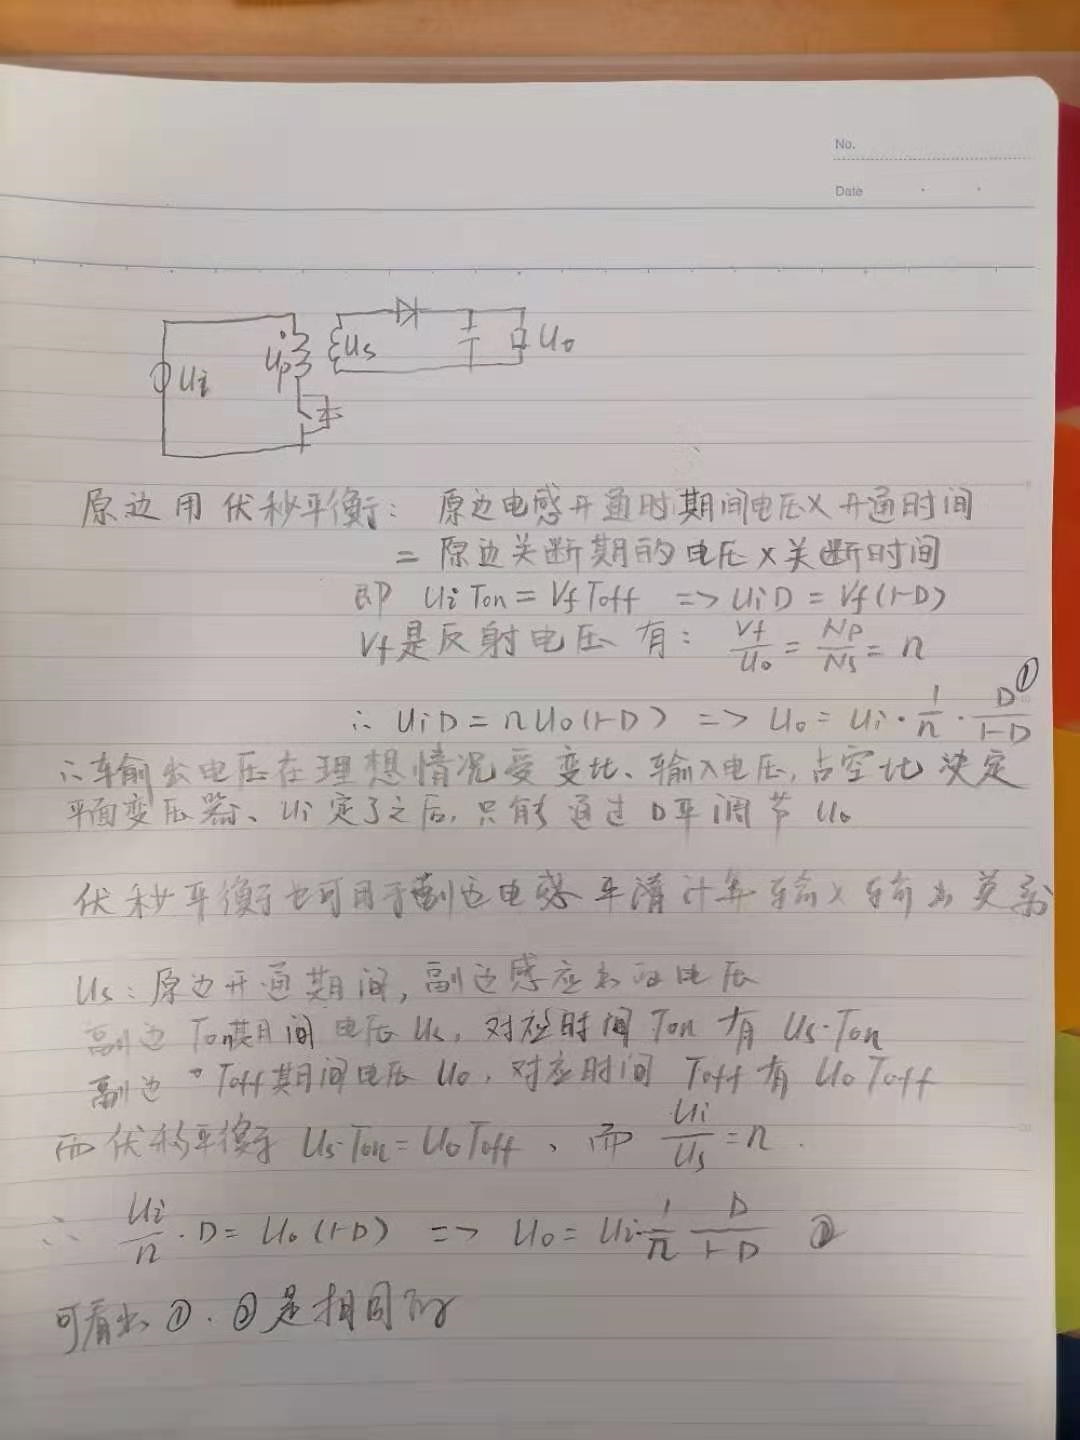 No.
Date
Up
Us
Uo
Ui
原边用伏秒平衡：原边电感开通时期间电压×开通时间
= 原边关断期的电压×关断时间
即 Ui Ton = Vf Toff => UiD = Vf(1-D)
Vf是反射电压 有: Vf/Uo = Np/Ns = n
∴ UiD = nUo(1-D) => Uo = Ui · 1/n · D/1-D ①
∴输出电压在理想情况受变比、输入电压,占空比决定
平面变压器、Ui定了之后,只能通过D来调节Uo
伏秒平衡也可用于副边电感 来 计算输入输出关系
Us: 原边开通期间,副边感应出的电压
副边 Ton期间电压Us, 对应时间Ton有 Us·Ton
副边 Toff期间电压Uo, 对应时间 Toff有 UoToff
而伏秒平衡 Us·Ton = UoToff、而 Ui/Us = n.
∴ Ui/n · D = Uo(1-D) => Uo = Ui·1/n D/1-D ②
可看出①.②是相同的